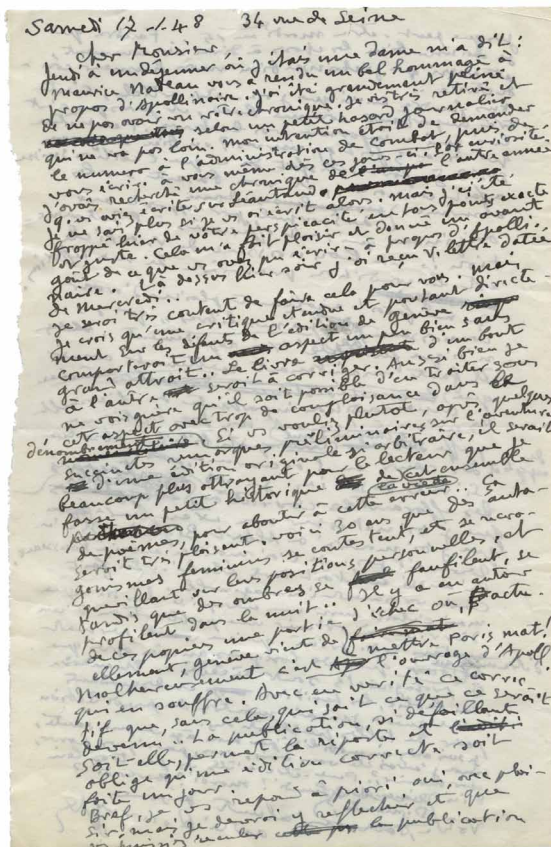 Samedi 17-1.48 34 rue de Seine
Cher Monsieur
Jeudi à un déjeuner où j'étais une dame m'a dit :
Maurice Nadeau vous a rendu un bel hommage à
propos d'Apollinaire. J'ai été grandement peiné
de ne pas avoir vu votre chronique. Je vis très retiré et
selon un petit hasard journalier
qui ne va pas loin. Mon intention était de demander
le numéro à l'administration de Combat, puis de
vous écrire à vous même dès ces jours-ci. Par curiosité
j'avais recherché une chronique de l'autre année
que vous aviez écrite sur Léautaud.
Je ne sais plus si je vous ai écrit alors. mais j'ai été
frappé hier de votre perspicacité en tous points exacte
et juste. Cela m'a fait plaisir et donné un avant
goût de ce que vous avez pu écrire à propos d'Apolli-
naire. Là dessus hier soir j'ai reçu v. lettre datée
de Mercredi..
Je serai très content de faire cela pour vous. mais
je crois qu'une critique étendue et pourtant directe-
ment sur les défauts de l'édition de Genève
comporterait un aspect un peu bien sans
grand attrait.. Le livre d'un bout
à l'autre serait à corriger. Aussi bien je
ne vois guère qu'il soit possible d'en traiter sous
cet aspect avec trop de complaisance dans le
dénombrement. Si vous vouliez plutôt, après quelques
succinctes remarques préliminaires sur l'aventure
d'une édition originale si arbitraire, il serait
beaucoup plus attrayant pour le lecteur que je
fasse un petit historique de cet ensemble
de poèmes, pour aboutir à cette erreur.. Ça
serait très plaisant. voici 30 ans que des anta-
gonismes féminins se contestent, et se recro-
quevillant sur leurs positions personnelles, et
tandis que des ombres se faufilent, se
profilent dans la nuit.. Il y a eu autour
de ces papiers une partie d'échec où, actu-
ellement, Genève vient de mettre Paris mat!
Malheureusement c'est l'ouvrage d'Apoll.
qui en souffre. Avec en vérité ce correc-
tif que, sans cela, qui sait ce que ce serait
devenu.. La publication, si défaillant
soit-elle, permet la riposte et
oblige qu'une édition correcte soit
faite un jour.
Bref, je vs réponds à priori oui, avec plai-
sir. mais je devrai y réfléchir et que
reculer la publication